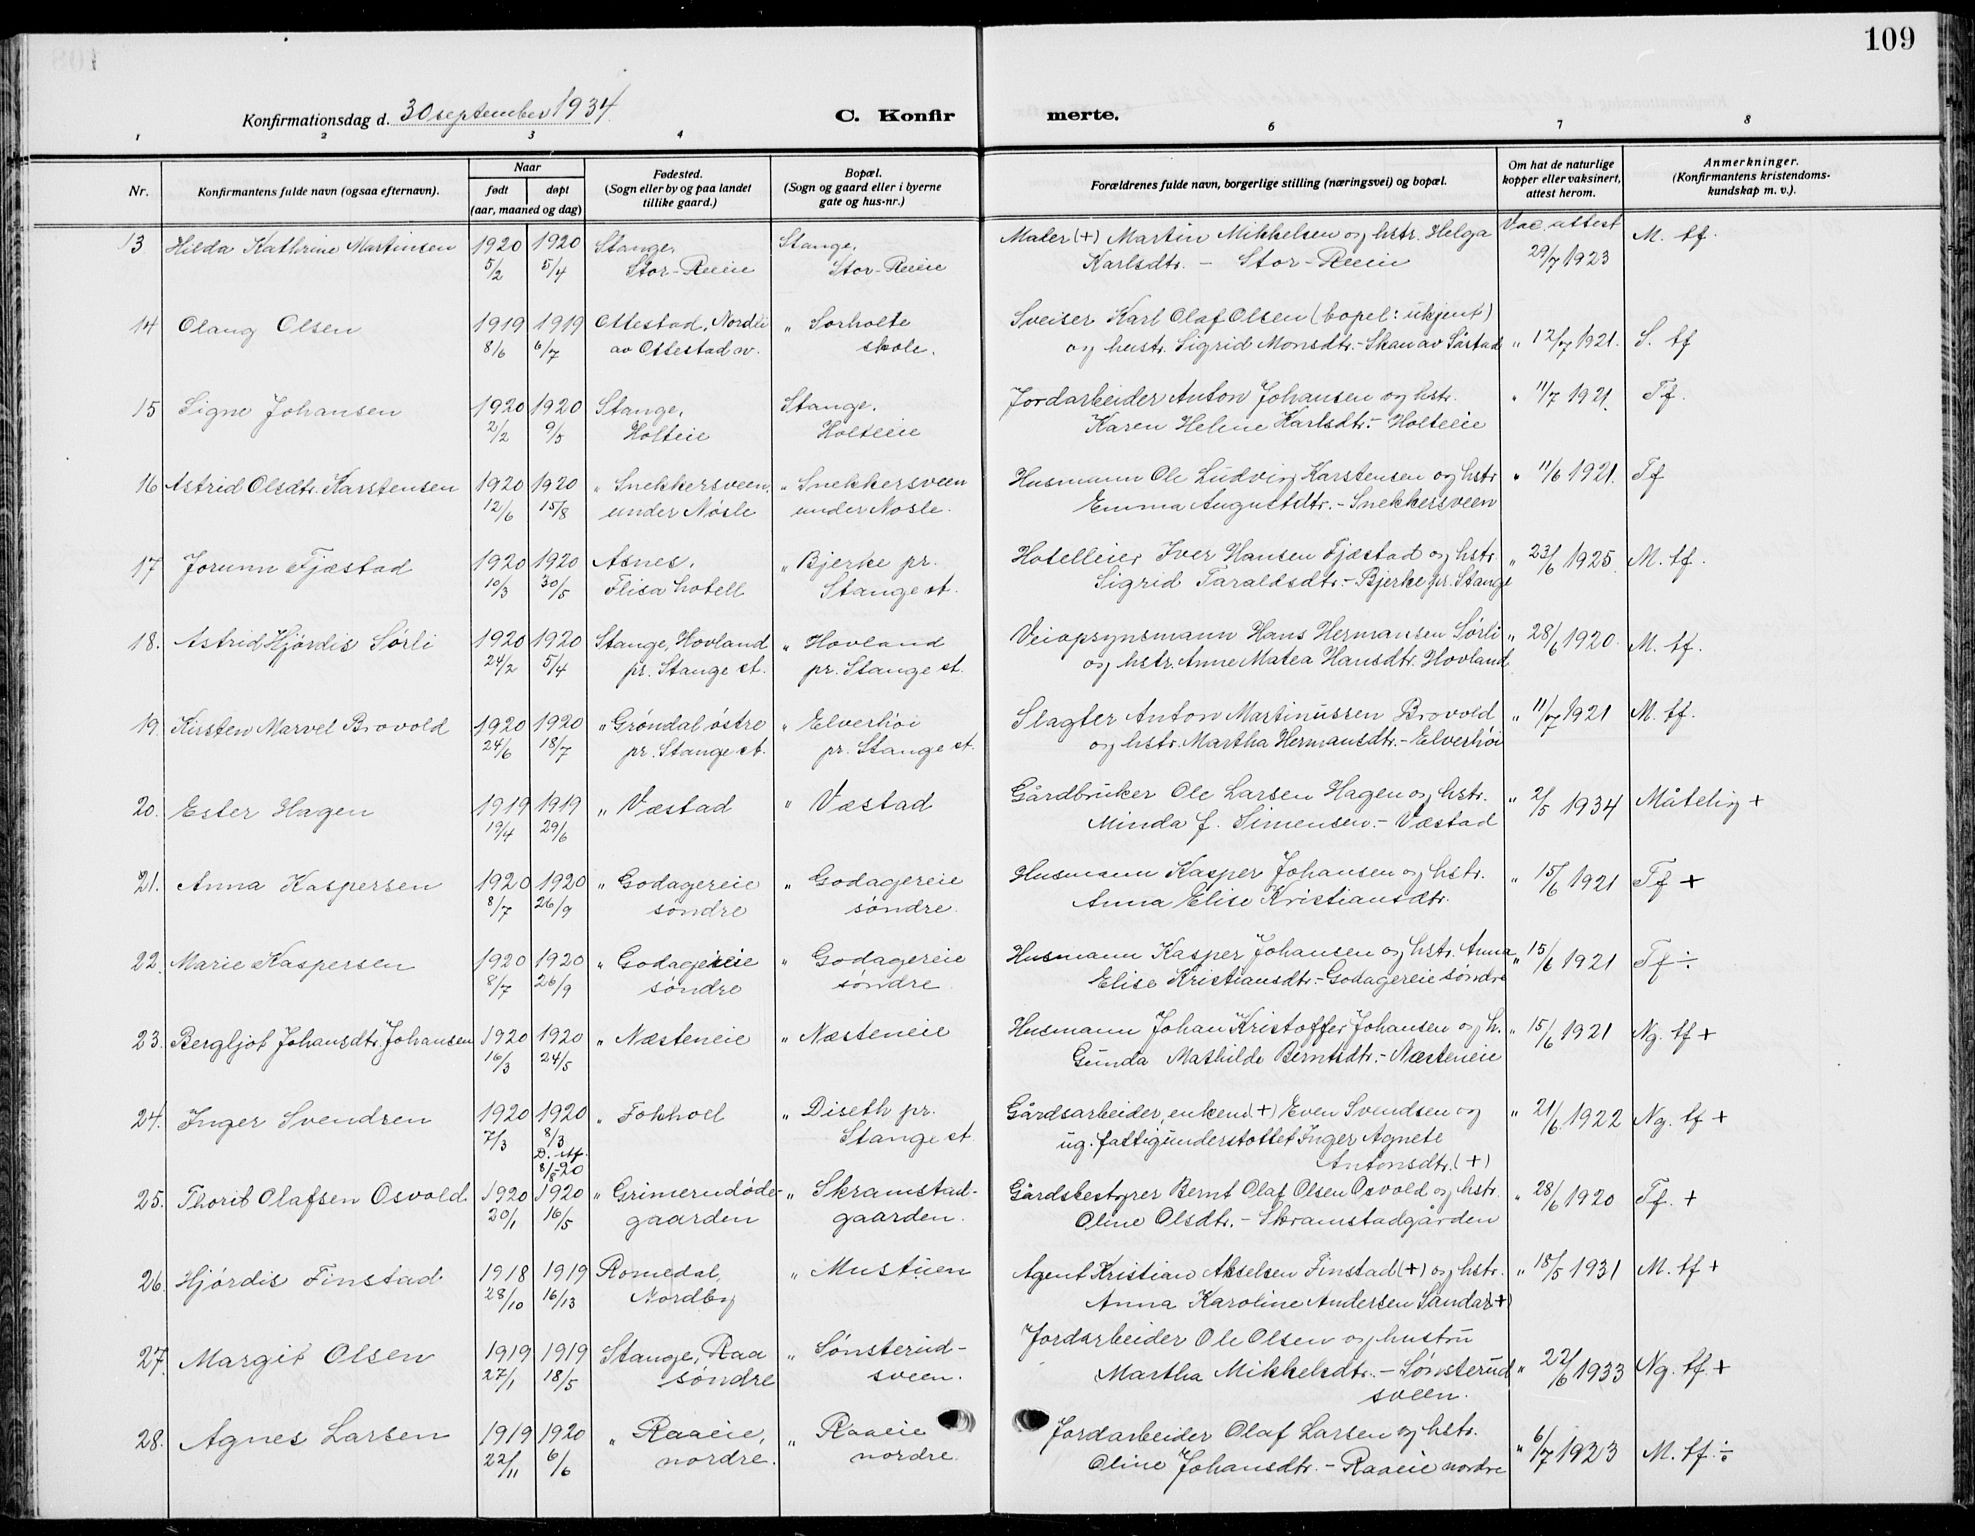 109
Konfirmationsdag d. 30 september 1934.
C. Konfirmerte.
1 2 3 4 6 7 8
Nr.
Konfirmantens fulde navn (ogsaa efternavn).
Naar
født døpt
(aar, maaned og dag)
Fødested.
(Sogn eller by og paa landet
tillike gaard.)
Bopæl.
(Sogn og gaard eller i byerne
gate og hus-nr.)
Forældrenes fulde navn, borgerlige stilling (næringsvei) og bopæl.
Om hat de naturlige
kopper eller vaksinert,
attest herom.
Anmerkninger.
(Konfirmantens kristendoms-
kundskap m. v.).
13 Hilda Kathrine Martinsen 1920 1920 Stange, Stange, Maler (+) Martin Mikkelsen og hstr. Helga Vac. attest M. tf.
5/2 5/4 Stor-Reeie Stor-Reeie Karlsdtr. - Stor-Reeie 29/7 1923
14 Olaug Olsen 1919 1919 Ottestad, Nordli " Sorholte Sveiser Karl Olaf Olsen (bopel: ukjent)
8/6 6/7 av Ottestad ov. skole. og hustr. Sigrid Monsdtr. - Skau av Såstad " 12/7 1921. S. tf
15 Signe Johansen 1920 1920 Stange, Stange, Jordarbeider Anton Johansen og hstr. " 11/7 1921. Tf.
2/2 9/5 Holteie Holteeie Karen Helene Karlsdtr. - Holteeie
16 Astrid Olsdtr. Karstensen 1920 1920 " Snekkersveen, " Snekkersveen Husmann Ole Ludvig Karstensen og hstr " 11/6 1921. Tf
12/6 15/8 under Nosle under Nosle. Emma Augustdtr. - Snekkersveen
17 Jorunn Fjæstad 1920 1920 Asnes, " Bjerke pr. Hotelleier Iver Hansen Fjæstad og hstr. " 23/6 1925. M. tf.
10/3 30/5 Flisa hotell Stange st. Sigrid Taraldsdtr. - Bjerke pr. Stange
18. Astrid Hjördis Sörli 1920 1920 Stange, Hovland " Hovland Veiopsynsmann Hans Hermansen Sørli " 28/6 1920. M. tf.
24/2 5/4 pr. Stange st. pr. Stange st. og hstr. Anne Matea Hansdtr. Hovland
19. Kirsten Marvel Brovold 1920 1920 " Gröndal östre " Elverhöi Slagter Anton Martinussen Brovold " 11/7 1921 M. tf.
24/6 18/7 pr. Stange st. pr. Stange st. og hstr. Martha Hermansdtr. - Elverhöi
20. Ester Hagen 1919 1919 " Væstad " Væstad Gårdbruker Ole Larsen Hagen og hstr. " 2/5 1934 Måtelig +
19/4 29/6 Minda f. Simensen. - Væstad
21. Anna Kaspersen 1920 1920 " Godagereie " Godagereie Husmann Kasper Johansen og hstr. " 15/6 1921 Tf +
8/7 26/9 söndre söndre. Anna Elise Kristiansdtr.
22. Marie Kaspersen 1920 1920 " Godagereie " Godagereie Husmann Kasper Johansen og hstr. Anna " 15/6 1921 Tf ÷
8/7 26/9 söndre söndre. Elise Kristiansdtr. - Godagereie söndre
23. Bergljot Johansdtr. Johansen 1920 1920 " Næsteneie " Næsteneie Husmann Johan Kristoffer Johansen og h. " 15/6 1921 Ng. tf +
16/3 24/5 Gunda Mathilde Berntsdtr. - Næsteneie
24. Inger Svendsen 1920 1920 " Fokhoel " Diseth pr. Gårdsarbeider, enkem (+) Even Svendsen og " 21/6 1922 Ng. tf +
7/3 8/3 Stange st. ug. fattigunderstöttet Inger Agnete
8/8-20 Antonsdtr. (+)
25. Thorit Olafsen Osvold 1920 1920 " Grimerudöde- " Skramstad- Gårdsbestyrer Bernt Olaf Olsen Osvold og hstr. " 28/6 1920 Tf. +
20/1 16/5 gaarden gaarden. Oline Olsdtr. - Skramstadgården
26. Hjördis Finstad 1918 1919 Romedal, " Mustuen Agent Kristian Akselsen Finstad (+) og hstr. " 18/5 1931 M. tf +
28/10 16/13 Nordby Anna Karoline Andersen Sandar (+)
27. Margit Olsen 1919 1919 Stange, Raa " Sønsterud- Jordarbeider Ole Olsen og hustru
27/1 18/5 söndre sveen. Martha Mikkelsdtr. - Sønsterud " 22/6 1933 Ng. tf +
sveen.
28. Agnes Larsen 1919 1920 " Raaeie, " Raaeie Jordarbeider Olaf Larsen og hstr. " 6/7 1923 M. tf. ÷
22/11 6/6 nordre. nordre. Oline Johansdtr. - Raaeie nordre